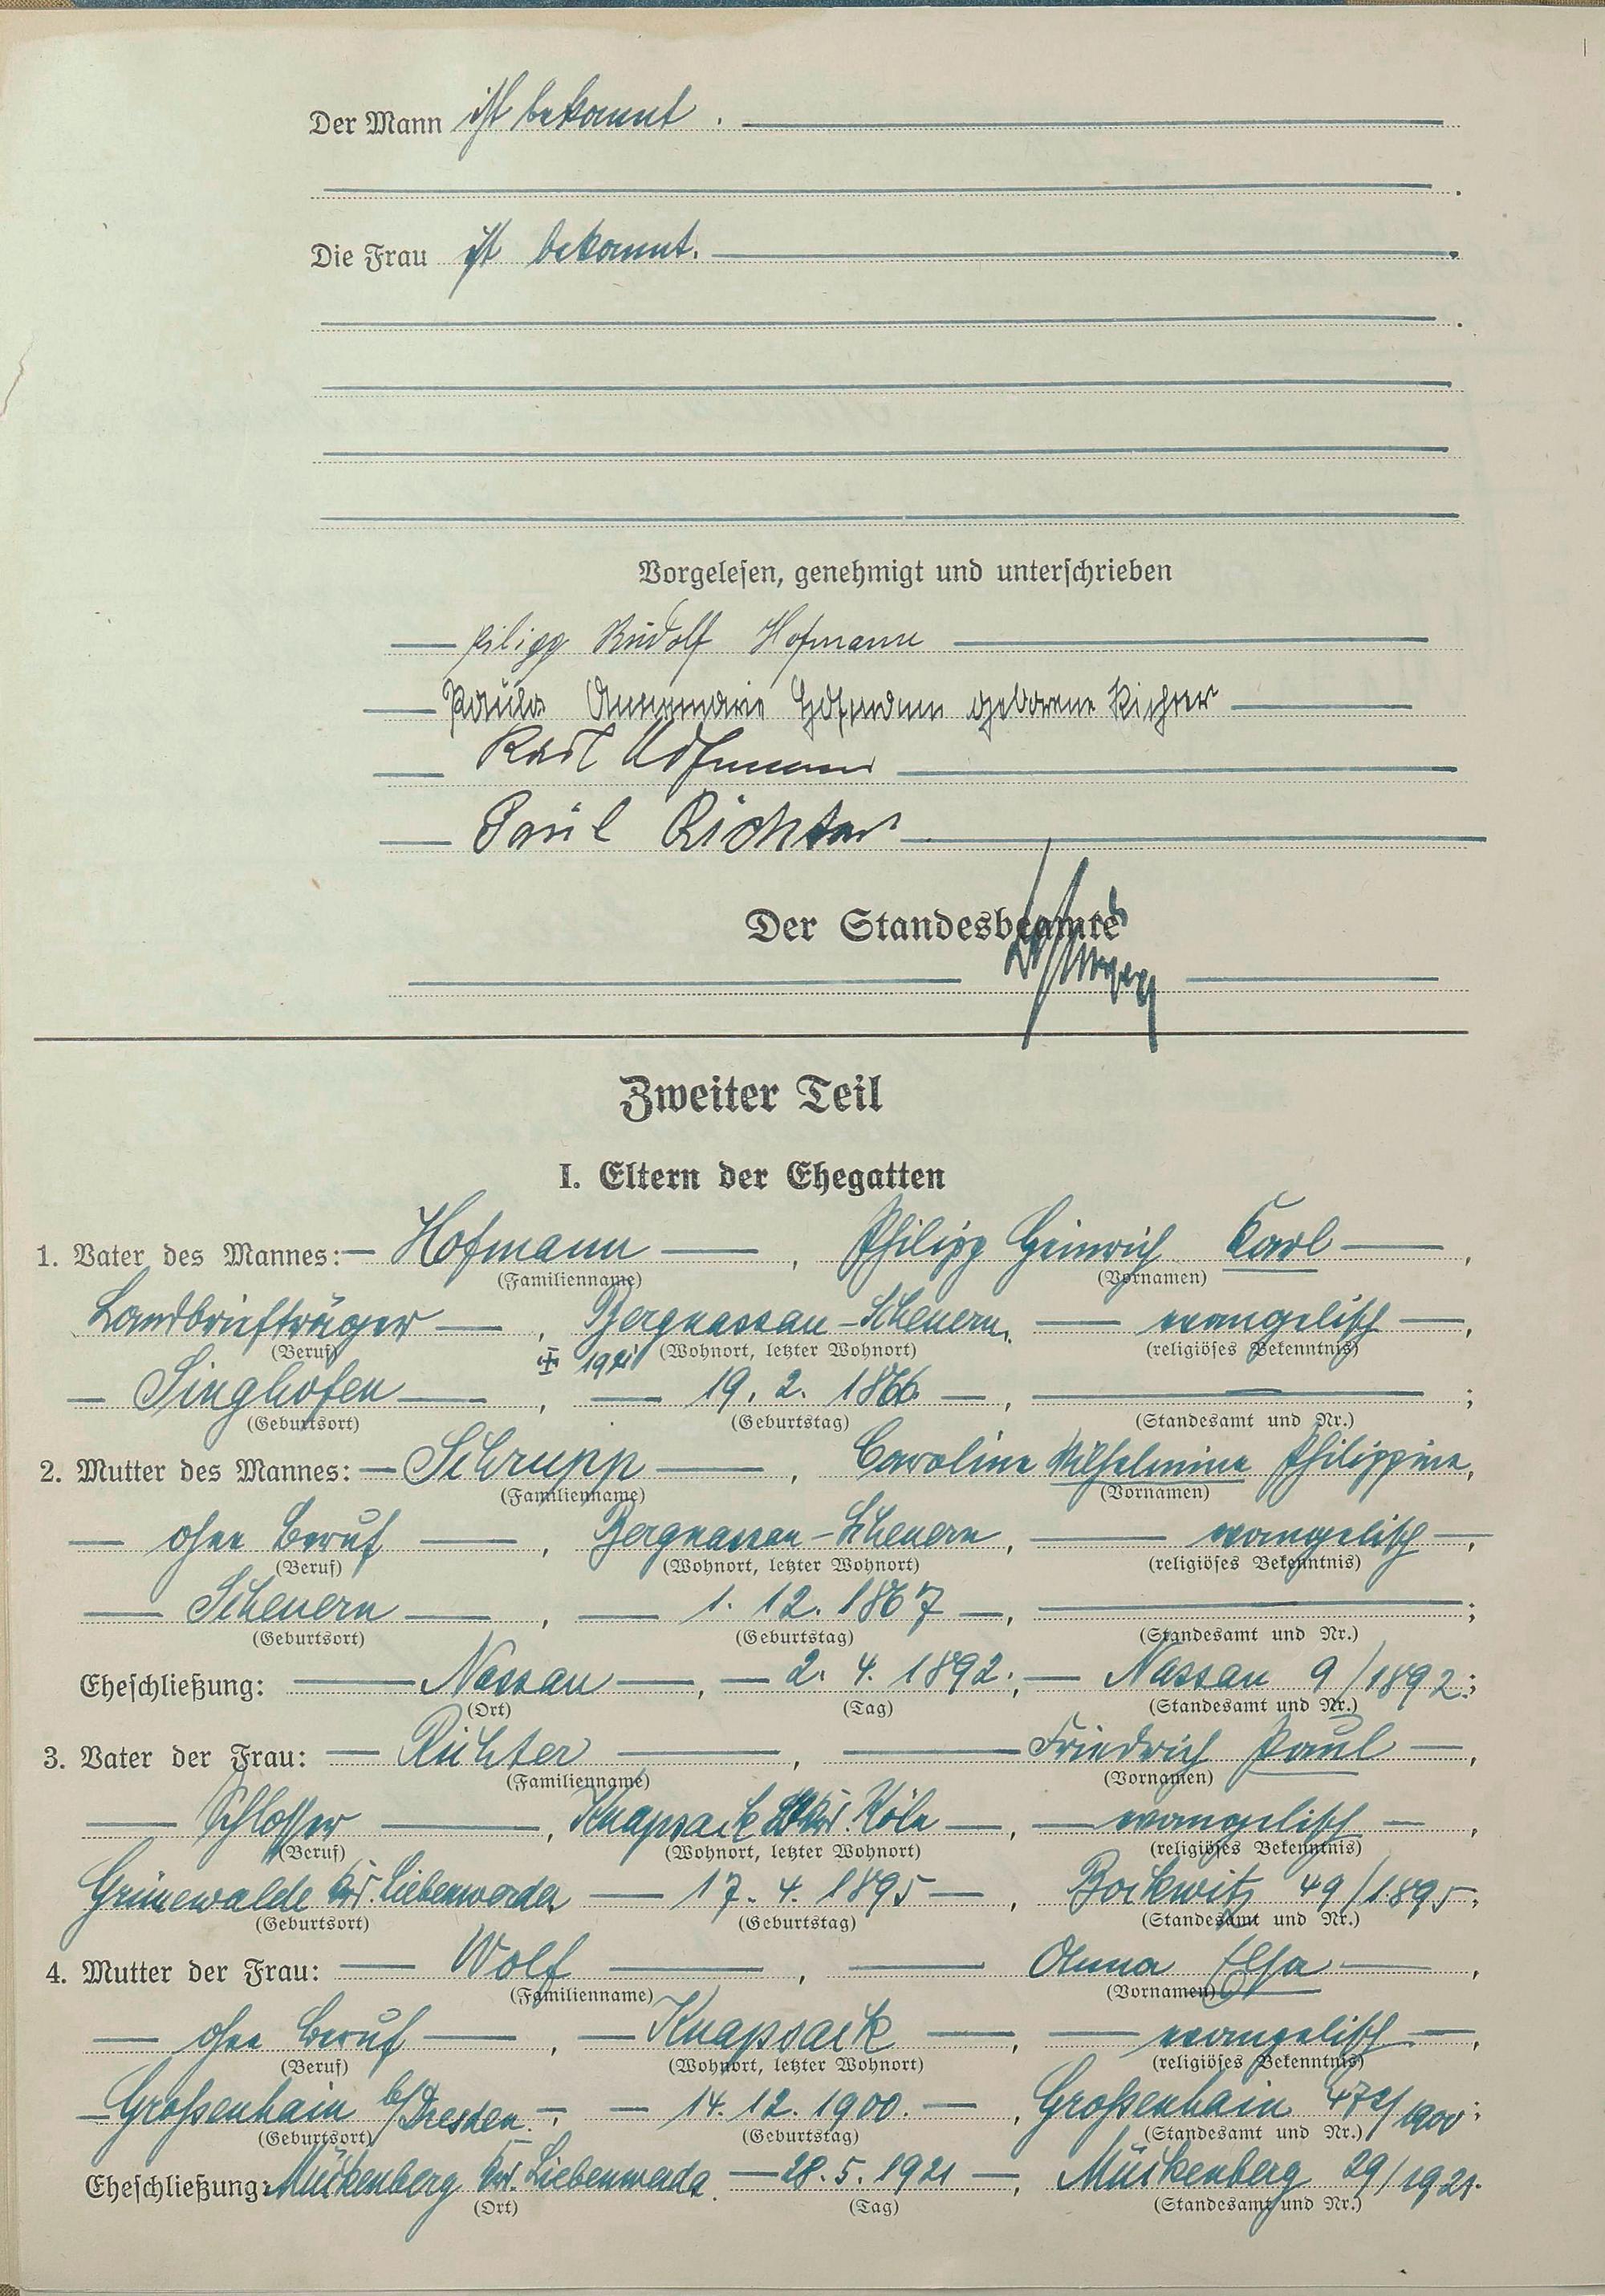 Der Mann ist bekannt.
Die Frau ist bekannt.
Vorgelesen, genehmigt und unterschrieben
Philipp Rudolf Hofmann
Paula Annemarie Hofmann geborene Richter
Karl Hofmann
Paul Richter
Der Standesbeamte
Zweiter Teil
I. Eltern der Ehegatten
1. Vater des Mannes: Hofmann, Philipp Heinrich Karl,
(Familienname) (Vornamen)
Landbriefträger, Bergnassau-Scheuern, evangelisch,
(Beruf) (Wohnort, letzter Wohnort) (religiöses Bekenntnis)
Singhofen, 19. 2. 1866, ;
(Geburtsort) (Geburtstag) (Standesamt und Nr.)
2. Mutter des Mannes: Schrupp, Caroline Wilhelmine Philippine,
(Familienname) (Vornamen)
ohne Beruf, Bergnassau-Scheuern, evangelisch,
(Beruf) (Wohnort, letzter Wohnort) (religiöses Bekenntnis)
Scheuern, 1. 12. 1867, ;
(Geburtsort) (Geburtstag) (Standesamt und Nr.)
Eheschließung: Nassau, 2. 4. 1892, Nassau 9/1892;
(Ort) (Tag) (Standesamt und Nr.)
3. Vater der Frau: Richter, Friedrich Paul,
(Familienname) (Vornamen)
Schlosser, Knapsack Köln, evangelisch,
(Beruf) (Wohnort, letzter Wohnort) (religiöses Bekenntnis)
Grünewalde Krs. Liebenwerda, 17. 4. 1895, Bockwitz 49/1895;
(Geburtsort) (Geburtstag) (Standesamt und Nr.)
4. Mutter der Frau: Wolf, Anna Elsa,
(Familienname) (Vornamen)
ohne Beruf, Knapsack, evangelisch,
(Beruf) (Wohnort, letzter Wohnort) (religiöses Bekenntnis)
Großenhain b/Dresden, 14. 12. 1900, Großenhain
(Geburtsort) (Geburtstag) (Standesamt und Nr.)
Eheschließung: Mückenberg Krs. Liebenwerda, 28. 5. 1921, Mückenberg 29/1921.
(Ort) (Tag) (Standesamt und Nr.)